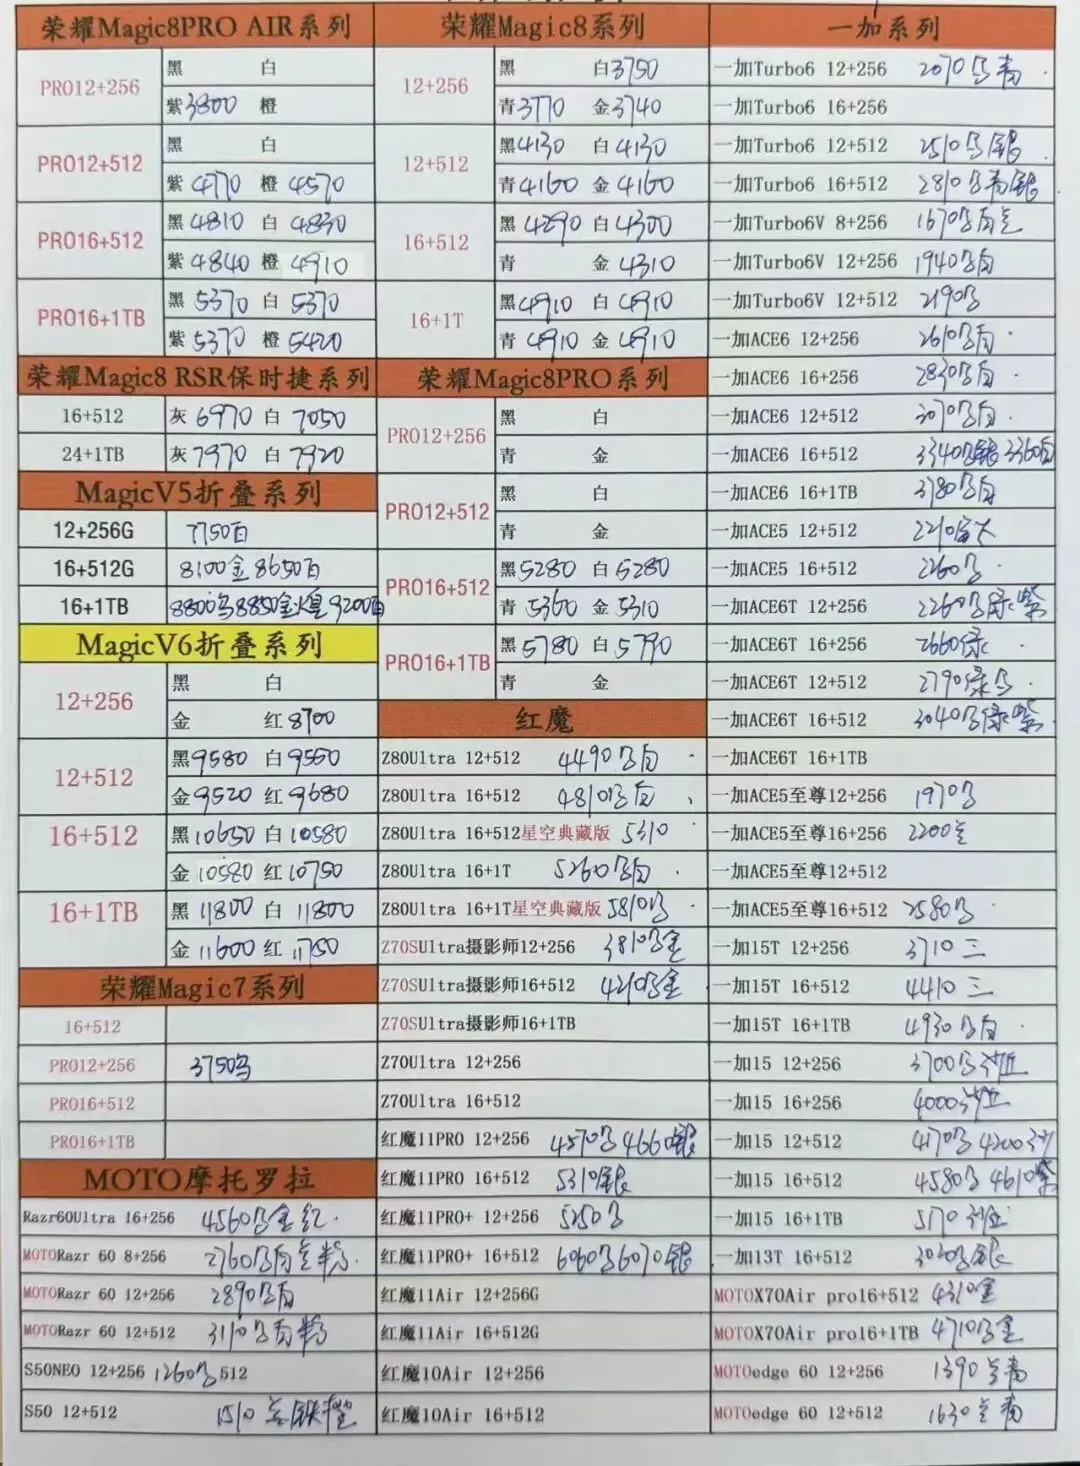 荣耀Magic8PRO AIR系列
PRO12+256 黑 白
紫3800 橙
PRO12+512 黑 白
紫4770 橙4570
PRO16+512 黑4810 白4830
紫4840 橙4910
PRO16+1TB 黑5370 白5370
紫5370 橙5420
荣耀Magic8 RSR保时捷系列
16+512 灰6970 白7050
24+1TB 灰7970 白7920
MagicV5折叠系列
12+256G 7750白
16+512G 8100金 8650白
16+1TB 8800 8850金 9200白
MagicV6折叠系列
12+256 黑 白
金 红8700
12+512 黑9580 白9550
金9520 红9680
16+512 黑10650 白10580
金10580 红10750
16+1TB 黑11800 白11800
金11600 红11750
荣耀Magic7系列
16+512
PRO12+256 3750
PRO16+512
PRO16+1TB
MOTO摩托罗拉
Razr60Ultra 16+256 4560 金红
MOTORazr 60 8+256 2760
MOTORazr 60 12+256 2890
MOTORazr 60 12+512 3110
S50NEO 12+256 1260 512
S50 12+512 1510
荣耀Magic8系列
12+256 黑 白3750
青3770 金3740
12+512 黑4130 白4130
青4160 金4160
16+512 黑4290 白4300
青 金4310
16+1T 黑4910 白4910
青4910 金4910
荣耀Magic8PRO系列
PRO12+256 黑 白
青 金
PRO12+512 黑 白
青 金
PRO16+512 黑5280 白5280
青5360 金5310
PRO16+1TB 黑5780 白5790
青 金
红魔
Z80Ultra 12+512 4490
Z80Ultra 16+512 4810
Z80Ultra 16+512星空典藏版 5310
Z80Ultra 16+1T 5260
Z80Ultra 16+1T星空典藏版 5810
Z70SUltra摄影师12+256 3810
Z70SUltra摄影师16+512 4210
Z70SUltra摄影师16+1TB
Z70Ultra 12+256
Z70Ultra 16+512
红魔11PRO 12+256 4570 4660银
红魔11PRO 16+512 5310银
红魔11PRO+ 12+256 5250
红魔11PRO+ 16+512 6060 6070银
红魔11Air 12+256G
红魔11Air 16+512G
红魔10Air 12+256
红魔10Air 16+512
一加系列
一加Turbo6 12+256 2070
一加Turbo6 16+256
一加Turbo6 12+512 2510
一加Turbo6 16+512 2810
一加Turbo6V 8+256 1670
一加Turbo6V 12+256 1940
一加Turbo6V 12+512 2190
一加ACE6 12+256 2610
一加ACE6 16+256 2830
一加ACE6 12+512 3070
一加ACE6 16+512 3340 3360
一加ACE6 16+1TB 3780
一加ACE5 12+512 2210
一加ACE5 16+512 2260
一加ACE6T 12+256 2260 绿紫
一加ACE6T 16+256 2660绿
一加ACE6T 12+512 2790绿
一加ACE6T 16+512 3040 绿紫
一加ACE6T 16+1TB
一加ACE5至尊12+256 1970
一加ACE5至尊16+256 2200
一加ACE5至尊12+512
一加ACE5至尊16+512 2580
一加15T 12+256 3710 三
一加15T 16+512 4410 三
一加15T 16+1TB 4930
一加15 12+256 3700
一加15 16+256 4000
一加15 12+512 4170 4200
一加15 16+512 4580 4610紫
一加15 16+1TB 5170
一加13T 16+512 3020 银
MOTOX70Air pro16+512 4310
MOTOX70Air pro16+1TB 4710
MOTOedge 60 12+256 1390
MOTOedge 60 12+512 1630